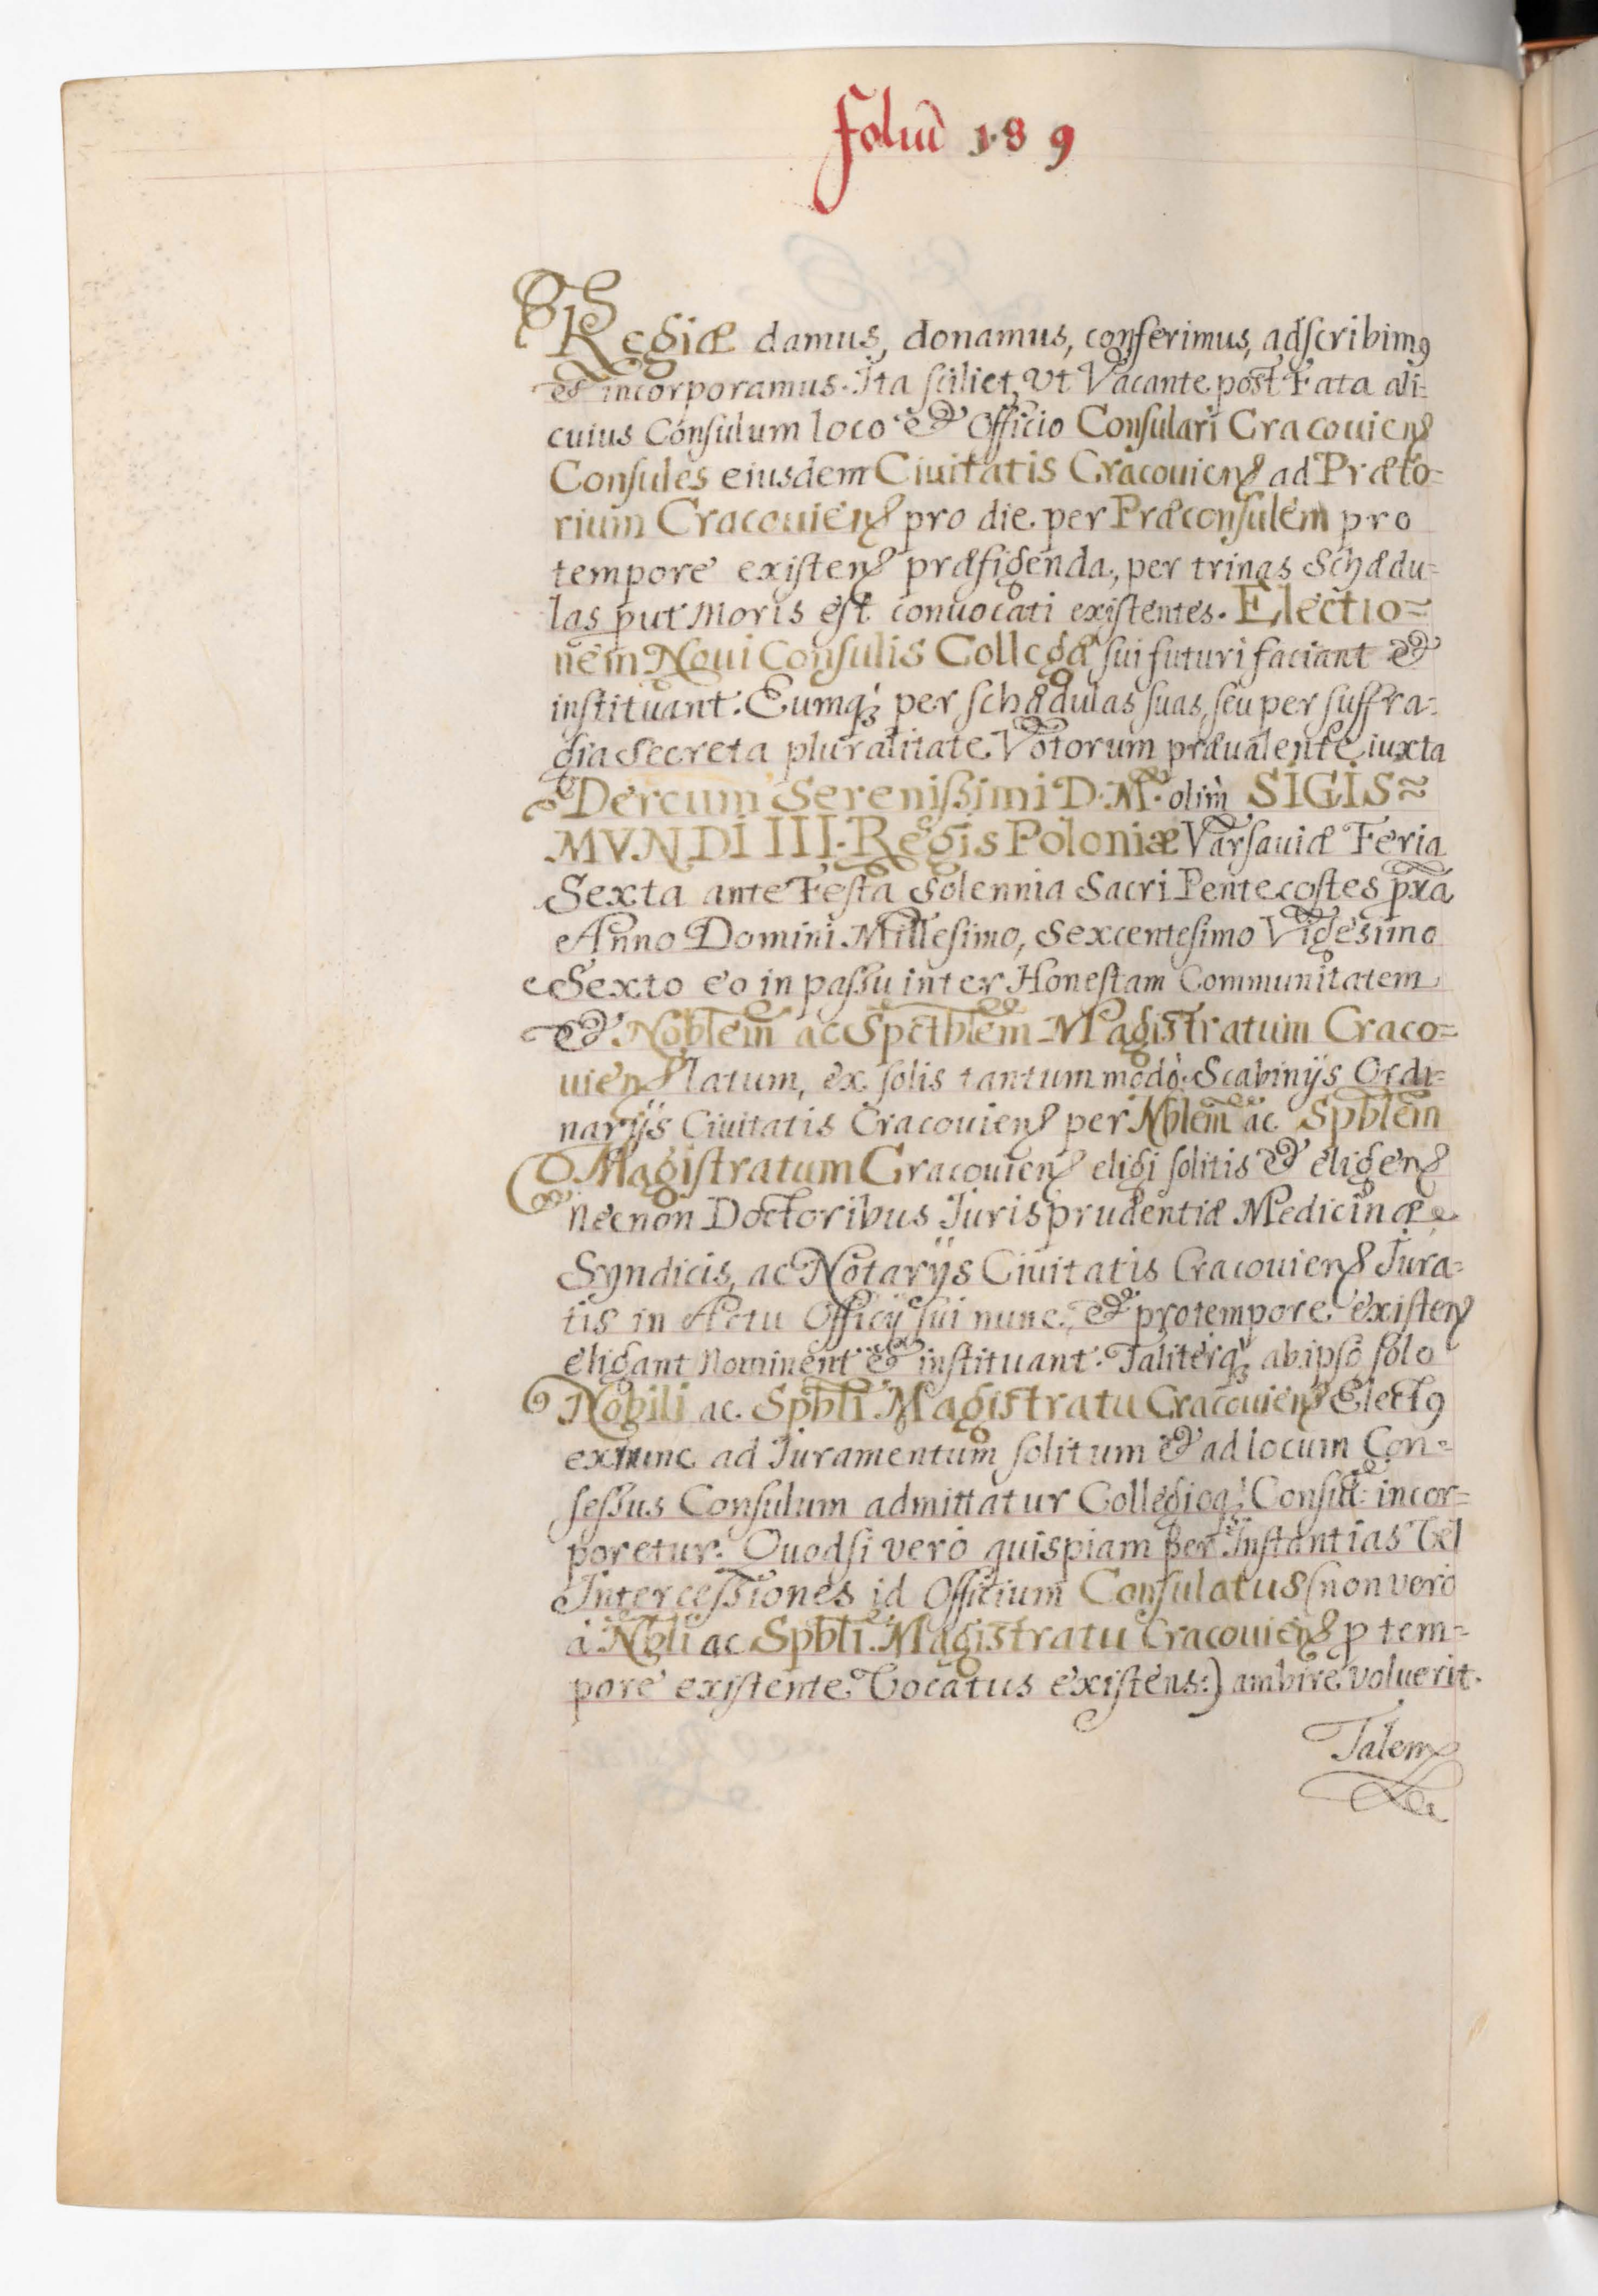 foliū 189
Regiæ damus, donamus, conferimus, adscribimꝰ
et incorporamus. Ita scilicet, vt Vacante post Fata ali-
cuius Consulum loco et Officio Consulari Cracouienꝭ
Consules eiusdem Ciuitatis Cracouienꝭ ad Præto=
rium Cracouienꝭ pro die per Præconsulem pro
tempore existenꝭ præfigenda, per trinas Schædu=
las put Moris est conuocati existentes. Electio=
nem Noui Consulis Collegæ sui futuri faciant et
instituant. Eumqꝫ per schædulas suas, seu per suffra-
gia Secreta pluralitate Votorum præualente iuxta
Dercum Serenissimi D. M. olim SIGIS=
MVNDI III. Regis Poloniæ Varsauiæ Feria
Sexta ante Festa Solennia Sacri Pentecostes pxā
Anno Domini Millesimo, Sexcentesimo Vigesimo
Sexto eo in passu inter Honestam Communitatem
et Noblem ac Spctblem Magistratum Craco=
uienꝭ latum, ex solis tantummodò Scabinijs Ordi=
narijs Ciuitatis Cracouienꝭ per Nblem ac Spblem
Magistratum Cracouienꝭ eligi solitis et eligenꝭ
necnon Doctoribus Iurisprudentiæ Medicinæ
Syndicis, ac Notarijs Ciuitatis Cracouienꝭ Iura=
tis in Actu Officij sui nunc, et pro tempore existenꝭ
eligant Nominent et instituant. Taliterqꝫ ab ipso solo
Nobili ac Spbli Magistratu Cracouienꝭ Electꝰ
extunc ad Iuramentum solitum et ad locum Con=
sessus Consulum admittatur Collegioqꝫ Consui: incor=
poretur. Quodsi vero quispiam per Instantias Vel
Intercessiones id Officium Consulatus (non vero
à Nbli ac Spbli Magistratu Cracouienꝭ ꝓ tem=
pore existente Vocatus existens:) ambire voluerit.
Talem